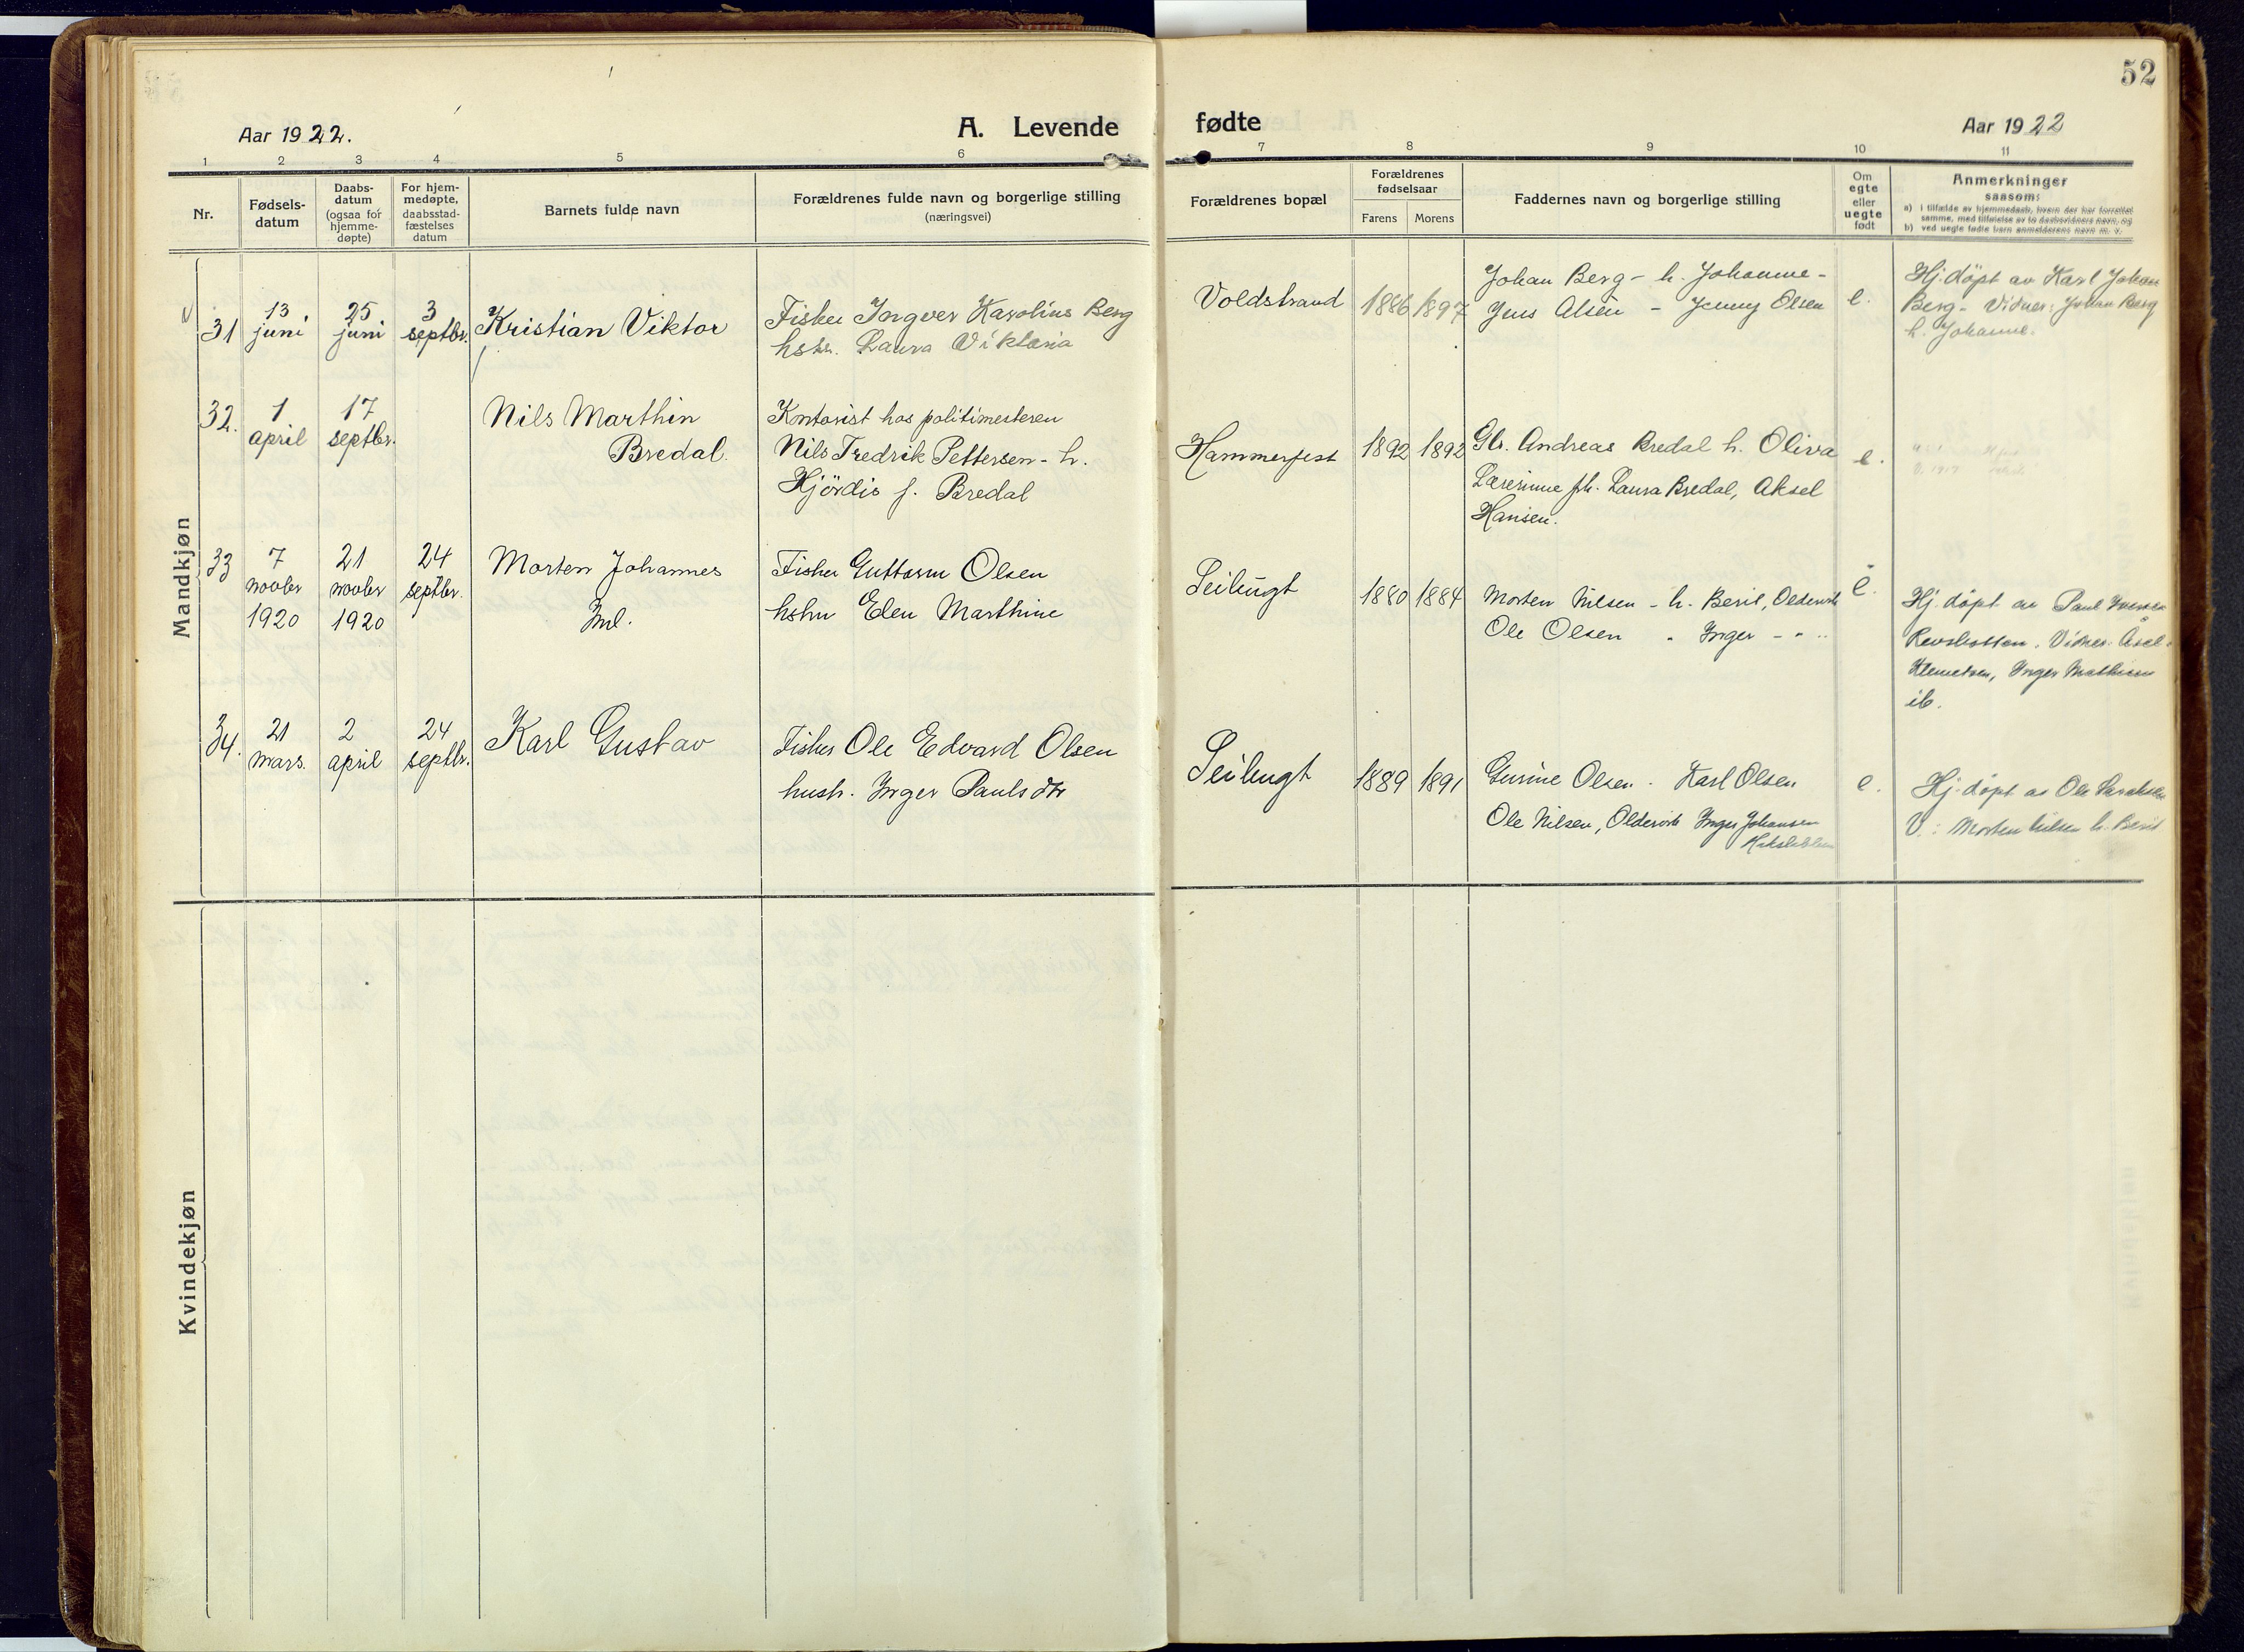 52
Aar 1922.
A. Levende fødte
Aar 1922
1 2 3 4 5 6 7 8 9 10 11
Nr.
Fødsels-
datum
Daabs-
datum
(ogsaa for
hjemme-
døpte)
For hjem-
medøpte,
daabsstad-
fæstelses
datum
Barnets fulde navn
Forældrenes fulde navn og borgerlige stilling
(næringsvei)
Forældrenes bopæl
Forældrenes
fødselsaar
Farens Morens
Faddernes navn og borgerlige stilling
Om
egte
eller
uegte
født
Anmerkninger
saasom:
a) i tilfælde av hjemmedaab, hvem der har forrettet
samme, med tilføielse av to daabsvidners navn, og
b) ved uegte fødte barn anmelderens navn m. v.
Mandkjøn
31
13
juni
25
juni
3
septbr.
Kristian Viktor
Fisker Ingver Karolius Berg
hstr. Laura Viktoria
Voldstrand
1886 1897
Johan Berg - h. Johanne -
Jens Olsen - Jenny Olsen
e.
Hj. döpt av Karl Johan
Berg - Vidner: Johan Berg
h. Johanne.
32.
1
april
17
septbr.
Nils Marthin
Bredal.
Kntorist hos politimesteren
Nils Fredrik Pettersen - h.
Hjördis f. Bredal
Hammerfest
1892 1892
Gbr. Andreas Bredal h. Oliva
Lærerinne frk. Laura Bredal, Aksel
Hansen.
e.
33
7
novbr
1920
21
novbr
1920
24
septbr.
Morten Johannes
Fisker Guttorm Olsen
hstru Elen Marthine
Seilugt
1880 1884
Morten Nilsen - h. Berit, Oldervik
Ole Olsen " Inger - " -
e.
Hj. döpt av Paul Iversen
Revsbotten. Vidner:
Klemetsen, Inger Mathisen
ib.
34.
21
mars.
2
april
24
septbr.
Karl Gustav
Fisker Ole Edvard Olsen
hustr. Inger Paulsdtr
Seilugt
1889 1891
Gurine Olsen - Karl Olsen
Ole Nilsen, Oldervik Inger Johansen
e.
Hj. döpt av Ole
V.: Morten Nilsen h. Berit
Kvindekjøn